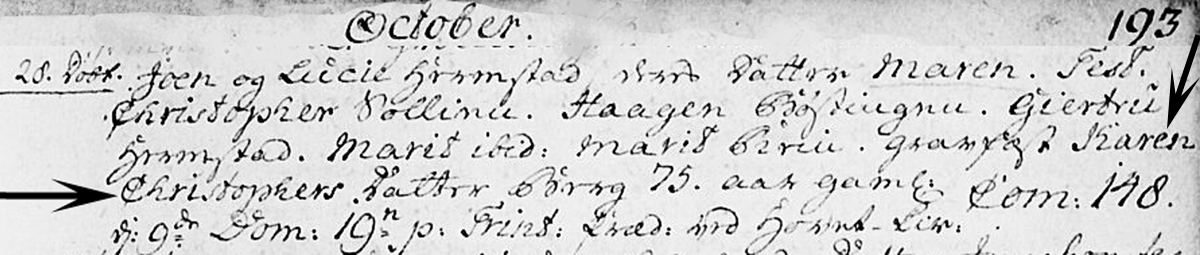 October. 193
28. Döbt. Joen og Lucie Hermstad deres Datter Maren. Test.
Christopher Sollinn. Haagen Gierdru
Hermstad. Marit ibid: Marit gravfest Karen
Christophers Datter Berrg 75. aar gaml: Com: 148.
d: 9de Dom: 19n p: Trinit: Præd: ved Hovet-Kir: